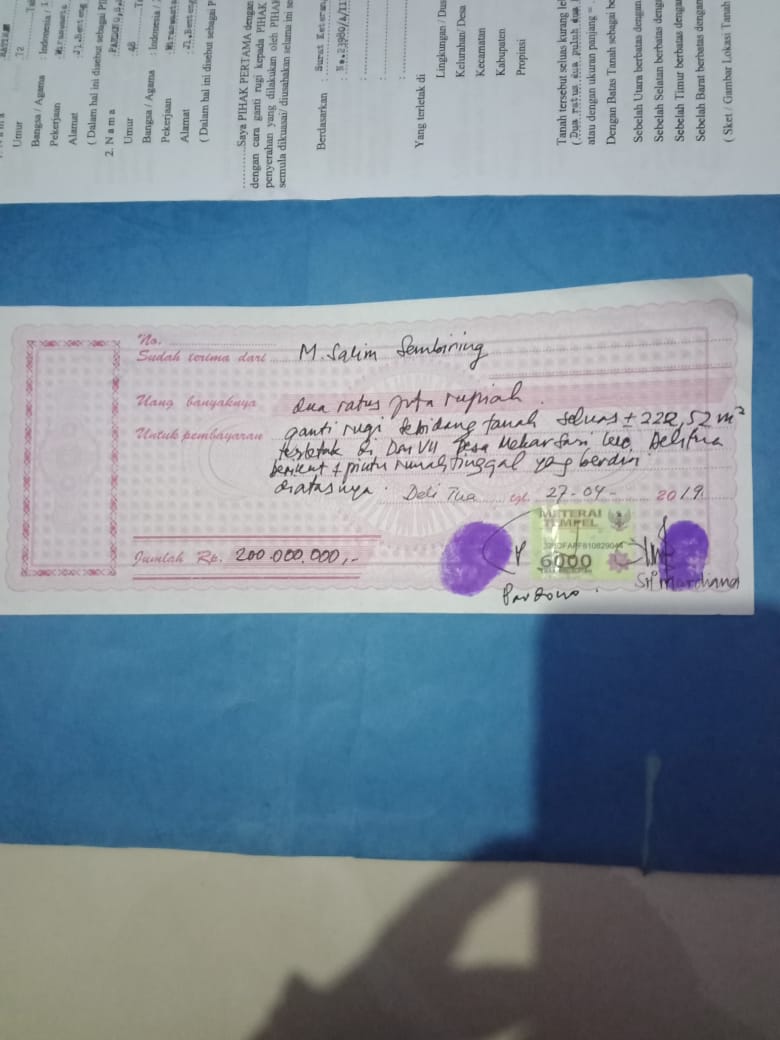 Umur : 72
Bangsa / Agama : Indonesia /
Pekerjaan : Wiraswasta
Alamat : Jl. Benteng
( Dalam hal ini disebut sebagai
2. N a m a
Umur : 48
Bangsa / Agama : Indonesia /
Pekerjaan : Wiraswasta
Alamat : Jl. Benteng
( Dalam hal ini disebut sebagai P
Saya PIHAK PERTAMA dengan
dengan cara ganti rugi kepada PIHAK
penyerahan yang dilakukan oleh PIHAK
semula dikuasai/ diusahakan selama ini se
Berdasarkan : Surat Keteran
Yang terletak di
Lingkungan / Dus
Kelurahan/ Desa
Kecamatan
Kabupaten
Propinsi
Tanah tersebut seluas kurang le
( Dua ratus dua puluh dua
atau dengan ukuran panjang =
Dengan Batas Tanah sebagai be
Sebelah Utara berbatas dengan
Sebelah Selatan berbatas denga
Sebelah Timur berbatas denga
Sebelah Barat berbatas dengan
( Sket / Gambar Lokasi Tanah
No.
Sudah terima dari M. Salim Sembiring
Uang banyaknya dua ratus juta rupiah.
Untuk pembayaran ganti rugi sebidang tanah seluas ± 222,52 m²
terletak di Dsn VII Desa Mekar Sari Kec. Delitua
berikut 1 pintu rumah tinggal yang berdiri
diatasnya. Deli Tua tgl. 27-04- 2019
METERAI
TEMPEL
6000
Jumlah Rp. 200.000.000,-
Sri Mardiana